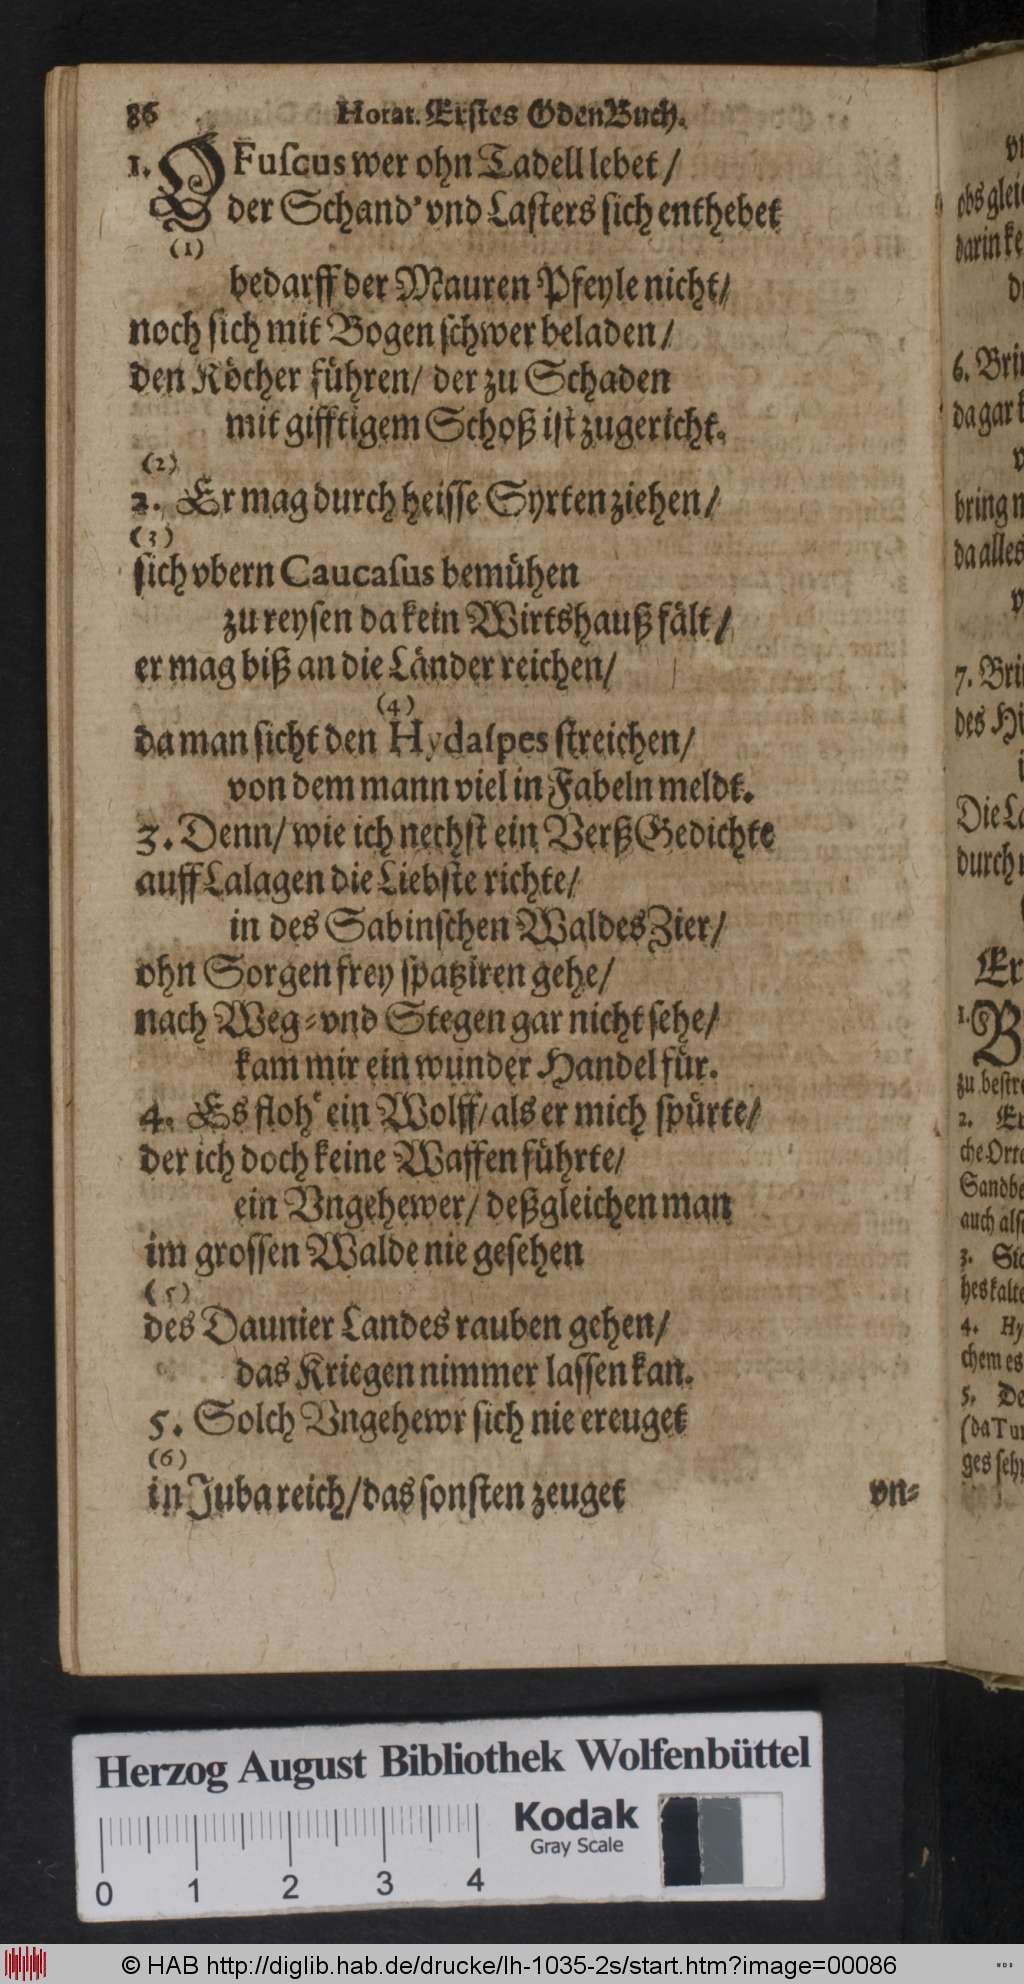 86 Horat. Erstes OdenBuch.
1. O Fuſcus wer ohn Tadell lebet /
der Schand' vnd Laſters ſich enthebet
(1)
bedarff der Mauren Pfeyle nicht /
noch ſich mit Bogen ſchwer beladen /
den Köcher führen / der zu Schaden
mit gifftigem Schoß iſt zugericht.
(2)
2. Er mag durch heiſſe Syrten ziehen /
(3)
ſich vbern Caucaſus bemühen
zu reyſen da kein Wirtshauß fält /
er mag biß an die Länder reichen /
(4)
da man ſicht den Hydaſpes ſtreichen /
von dem mann viel in Fabeln meldt.
3. Denn / wie ich nechſt ein Verß Gedichte
auff Lalagen die Liebſte richte /
in des Sabinſchen Waldes Zier /
ohn Sorgen frey ſpatziren gehe /
nach Weg= vnd Stegen gar nicht ſehe /
kam mir ein wunder Handel für.
4. Es floh' ein Wolff / als er mich ſpürte /
der ich doch keine Waffen führte /
ein Vngehewer / deßgleichen man
im groſſen Walde nie geſehen
(5)
des Daunier Landes rauben gehen /
das Kriegen nimmer laſſen kan.
5. Solch Vngehewr ſich nie ereuget
(6)
in Juba reich / das ſonſten zeuget
vn=
obs glei
darin ke
6. Bri
da gar k
bring n
da alles
7. Bri
des Hi
Die La
durch
Er
1. B
zu beſtre
2. Er
che Orte
Sandbe
auch alſ
3.
hes kalte
4. Hy
chem es
5. De
(da Tur
ges ſeh
Herzog August Bibliothek Wolfenbüttel
Kodak
Gray Scale
0 1 2 3 4
© HAB http://diglib.hab.de/drucke/lh-1035-2s/start.htm?image=00086